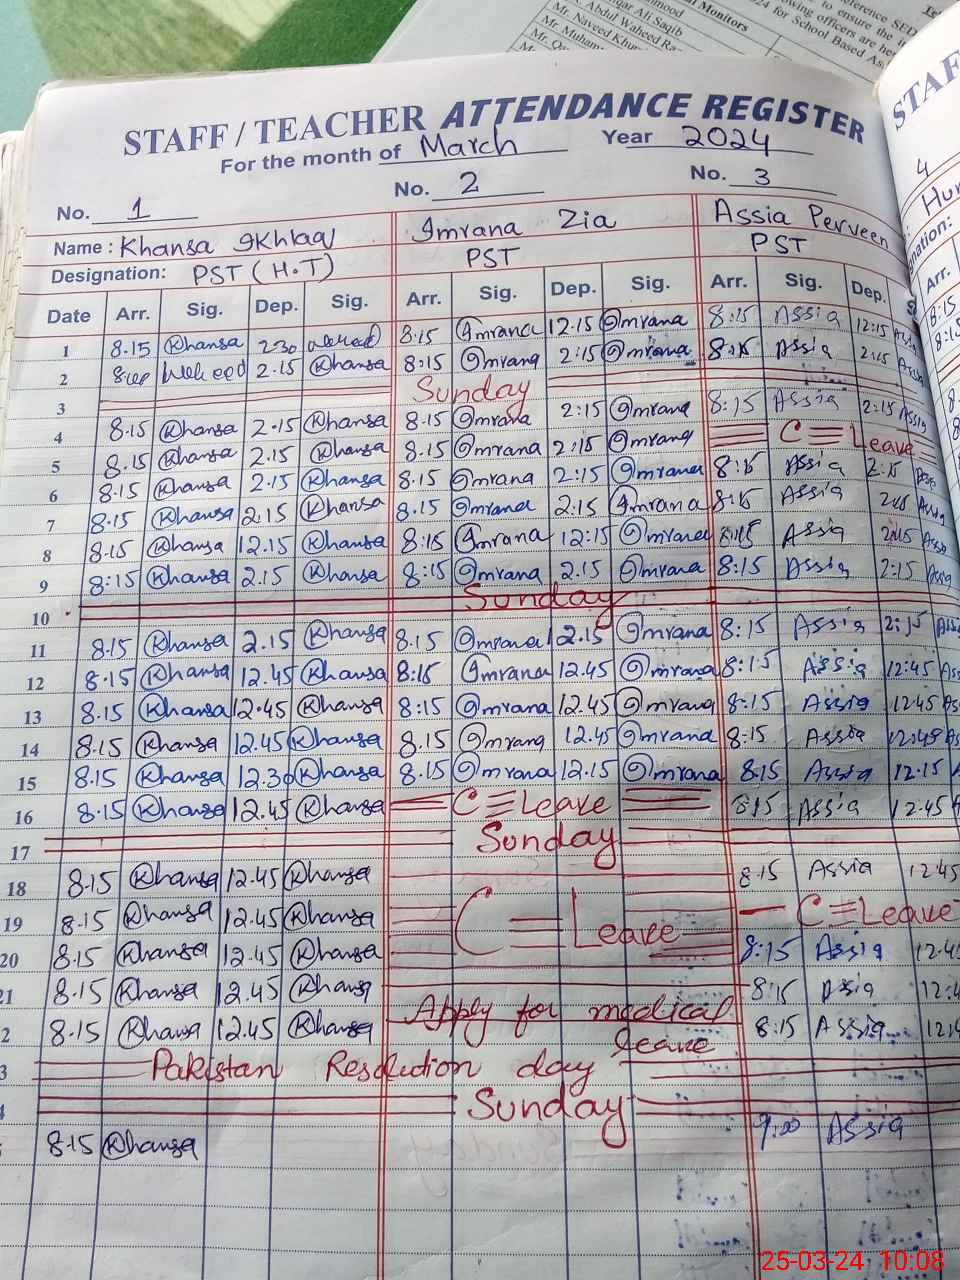 Reference SED
to ensure the
wing officers are he
24 for School Based As
al Monitors
mood
qar Ali Saqib
Abdul Waheed Ra
Mr. Naveed Khu
Mr. Muham
STAFF / TEACHER ATTENDANCE REGISTER
For the month of March Year 2024
No. 1 No. 2 No. 3
Name : Khansa Ikhlaq Imrana Zia Assia Perveen
Designation: PST (H.T) PST PST
Date Arr. Sig. Dep. Sig. Arr. Sig. Dep. Sig. Arr. Sig. Dep.
1 8.15 Khansa 2.30 8:15 Imrana 12.15 Imrana 8:15 Assia 12:15 Assia
2 Waheed 2.15 Khansa 8:15 Imrana 2:15 Imrana 8:15 Assia 2:15 Assia
3 Sunday
4 8.15 Khansa 2.15 Khansa 8.15 Imrana 2:15 Imrana 8:15 Assia 2:15 Assia
5 8.15 Khansa 2.15 Khansa 8.15 Imrana 2:15 Imrana C Leave
6 8.15 Khansa 2.15 Khansa 8.15 Imrana 2:15 Imrana 8:15 Assia 2:15
7 8.15 Khansa 2.15 Khansa 8.15 Imrana 2.15 Imrana 8:15 Assia
8 8.15 Khansa 12.15 Khansa 8:15 Imrana 12:15 Imrana 8:15 Assia
9 8:15 Khansa 2.15 Khansa 8:15 Imrana 2.15 Imrana 8:15 Assia 2:15 Assia
10 Sunday
11 8.15 Khansa 2.15 Khansa 8.15 Imrana 2.15 Imrana 8:15 Assia 2:15
12 8.15 Khansa 12.45 Khansa 8:15 Imrana 12.45 Imrana 8:15 Assia 12:45
13 8.15 Khansa 12.45 Khansa 8:15 Imrana 12.45 Imrana 8:15 Assia 12.45
14 8.15 Khansa 12.45 Khansa 8.15 Imrana 12.45 Imrana 8:15 Assia 12:45
15 8.15 Khansa 12.30 Khansa 8.15 Imrana 12.15 Imrana 8:15 Assia 12.15
16 8.15 Khansa 12.45 Khansa C Leave 8:15 Assia 12.45
17 Sunday
18 8.15 Khansa 12.45 Khansa 8:15 Assia 12:45
19 8.15 Khansa 12.45 Khansa C Leave C Leave
20 8.15 Khansa 12.45 Khansa 8:15 Assia
21 8.15 Khansa 12.45 Khansa 8:15 Assia
2 8.15 Khansa 12.45 Khansa Apply for medical leave 8:15 Assia
3 Pakistan Resolution day
Sunday
8.15 Khansa 9.00 Assia
STAF
4
Arr.
8:15
8:15
25-03-24 10:08